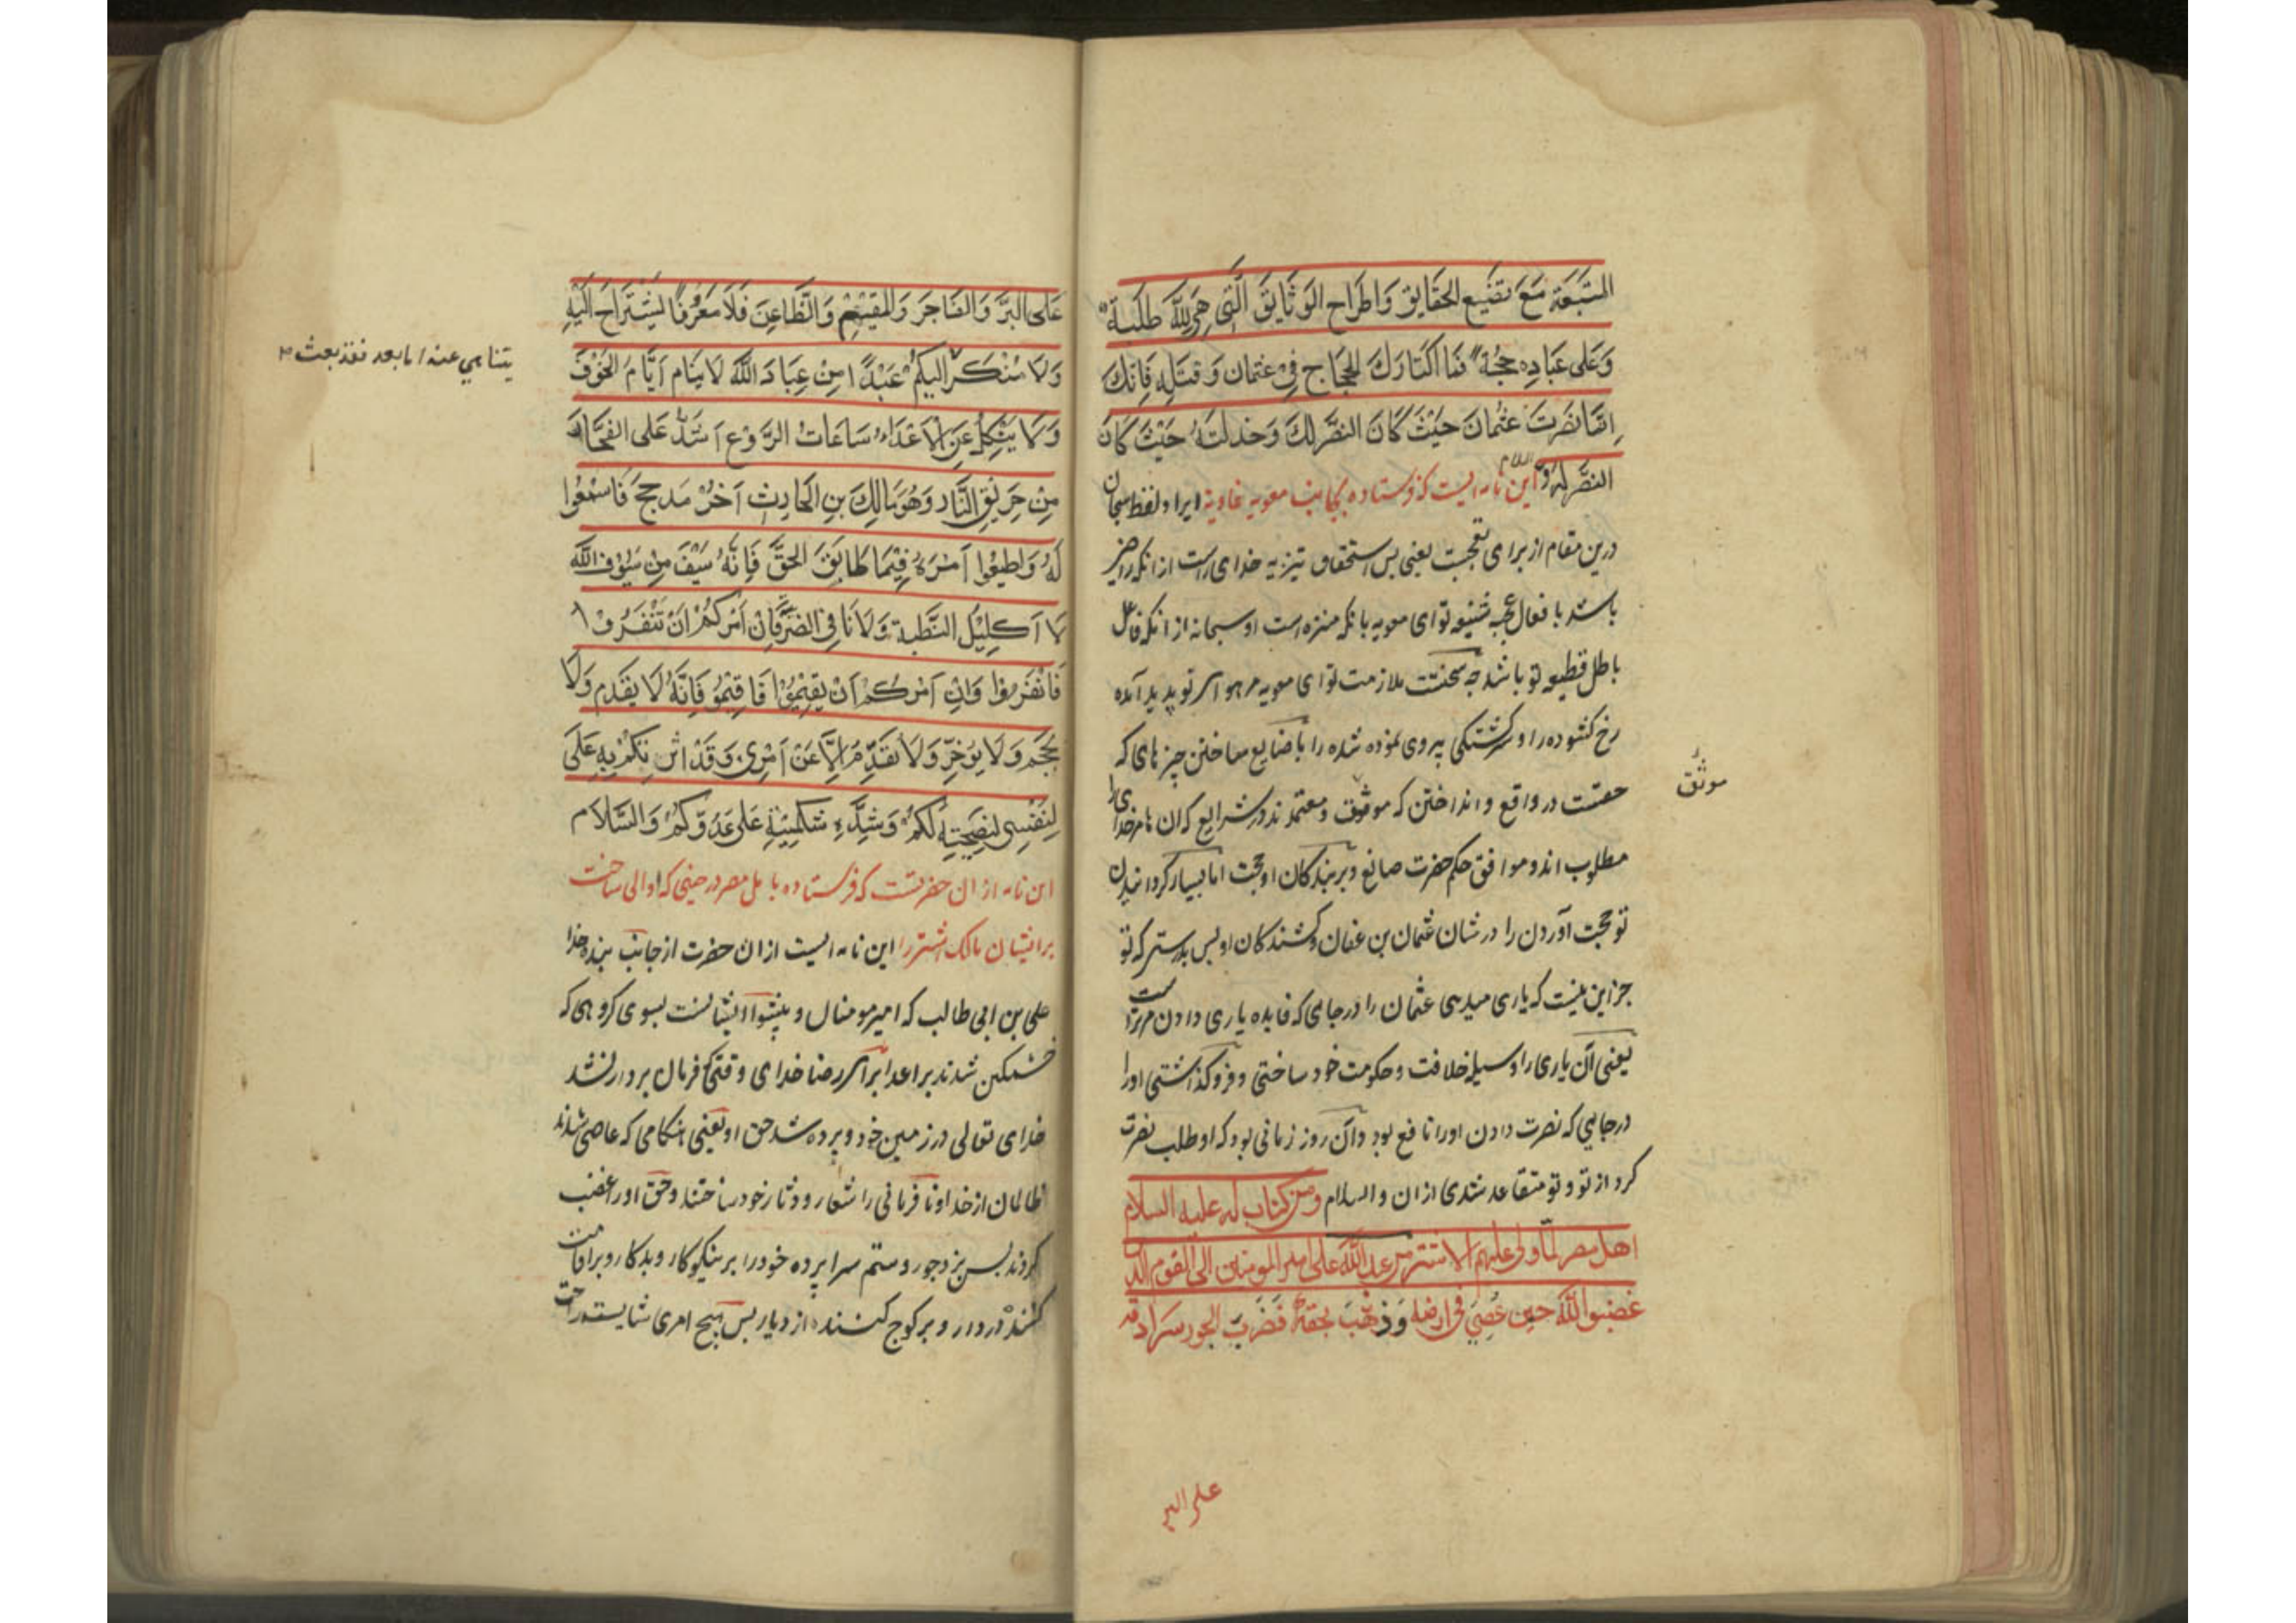 المتبعة مع تضییع الحقایق واطراح الوثایق التی هی لله طلبة
وعلی عباده حجة فاما اکثارك الحجاج فی عثمان وقتله فانك
انما نصرت عثمان حیث کان النصر لك وخذلته حیث کان
النصر له والسلام این نامه ایست که فرستاده بجانب معویه غاویة ایراد لفظ سبحان
درین مقام از برای تعجبت یعنی بس استحقاق تنزیه خدای راست از انکه راضی
باشد با فعال شنیعه تو ای معویه بانکه منزه است او سبحانه از انکه
باطل قطیعه تو باشد چه سختست ملازمت تو ای معویه مر هوای تو پدید آمده
رخ کشوده را و سرکشتکی پیروی نموده شده را با ضایع ساختن چیزهای که
حقست در واقع و انداختن که موثوق و معتمدند در شرایع که ان ها مر خدای را
مطلوب اند و موافق حکم حضرت صانع و بر بندکان او حجت اما بسیار کردانیدن
تو حجت آوردن را در شان عثمان بن عفان و کشندکان او بس بدرستی که تو
جز این نیست که یاری میدهی عثمان را در جای که فایده یاری دادن مر تراست
یعنی آن یاری را وسیله خلافت و حکومت خود ساختی و فرو کذاشتی او را
در جایی که نصرت دادن او را نافع بود و آن روز زمانی بود که او طلب نصرت
کرد از تو و تو متقاعد شدی ازان والسلام ومن کتاب له علیه السلام
اهل مصر لما ولی علیهم الاشتر من عبد الله علی امیر المومنین الی القوم الذین
غضبوا لله حین عصی فی ارضه وذهب بحقه فضرب الجور سرادقه
علی البر
موثق
علی البر والفاجر والمقیم والظاعن فلا معروف یستراح الیه
ولا منکر الیکم عبدا من عباد الله لا ینام ایام الخوف
ولا ینکل عن الاعداء ساعات الروع اشد علی الفجار
من حریق النار وهو مالك بن الحارث اخو مذحج فاسمعوا
له واطیعوا امره فیما طابق الحق فانه سیف من سیوف الله
لا کلیل الظبة ولا نابی الضریبة فان امرکم ان تنفروا
فانفروا وان امرکم ان یقیموا فاقیموا فانه لا یقدم ولا
یحجم ولا یؤخر ولا یقدم الا عن امری وقد اثرتکم به علی
لنفسی لنصیحته لکم وشدة شکیمته علی عدوکم والسلام
این نامه ازان حضرتست که فرستاده باهل مصر در حینی که والی ساخت
بر ایشان مالك اشتر را این نامه ایست ازان حضرت از جانب بنده خدا
علی بن ابی طالب که امیر مومنان و پیشوای ایشانست بسوی کروهی که
خشمکین شدند بر اعدا برای رضا خدای وقتی که فرمان بردار نشد
خدای تعالی در زمین خود و برده شد حق او یعنی هنکامی که عاصی شدند
ظالمان از خدا و نافرمانی را شعار و دثار خود ساختند و حق او را غضب
کردند بس بزد جور و ستم سرا پرده خود را بر نیکوکار و بدکار و بر اقامت
کننده در دار و بر کوج کننده از دیار بس هیچ امری شایسته راحت
یتناهی عنه اما بعد فقد بعثت